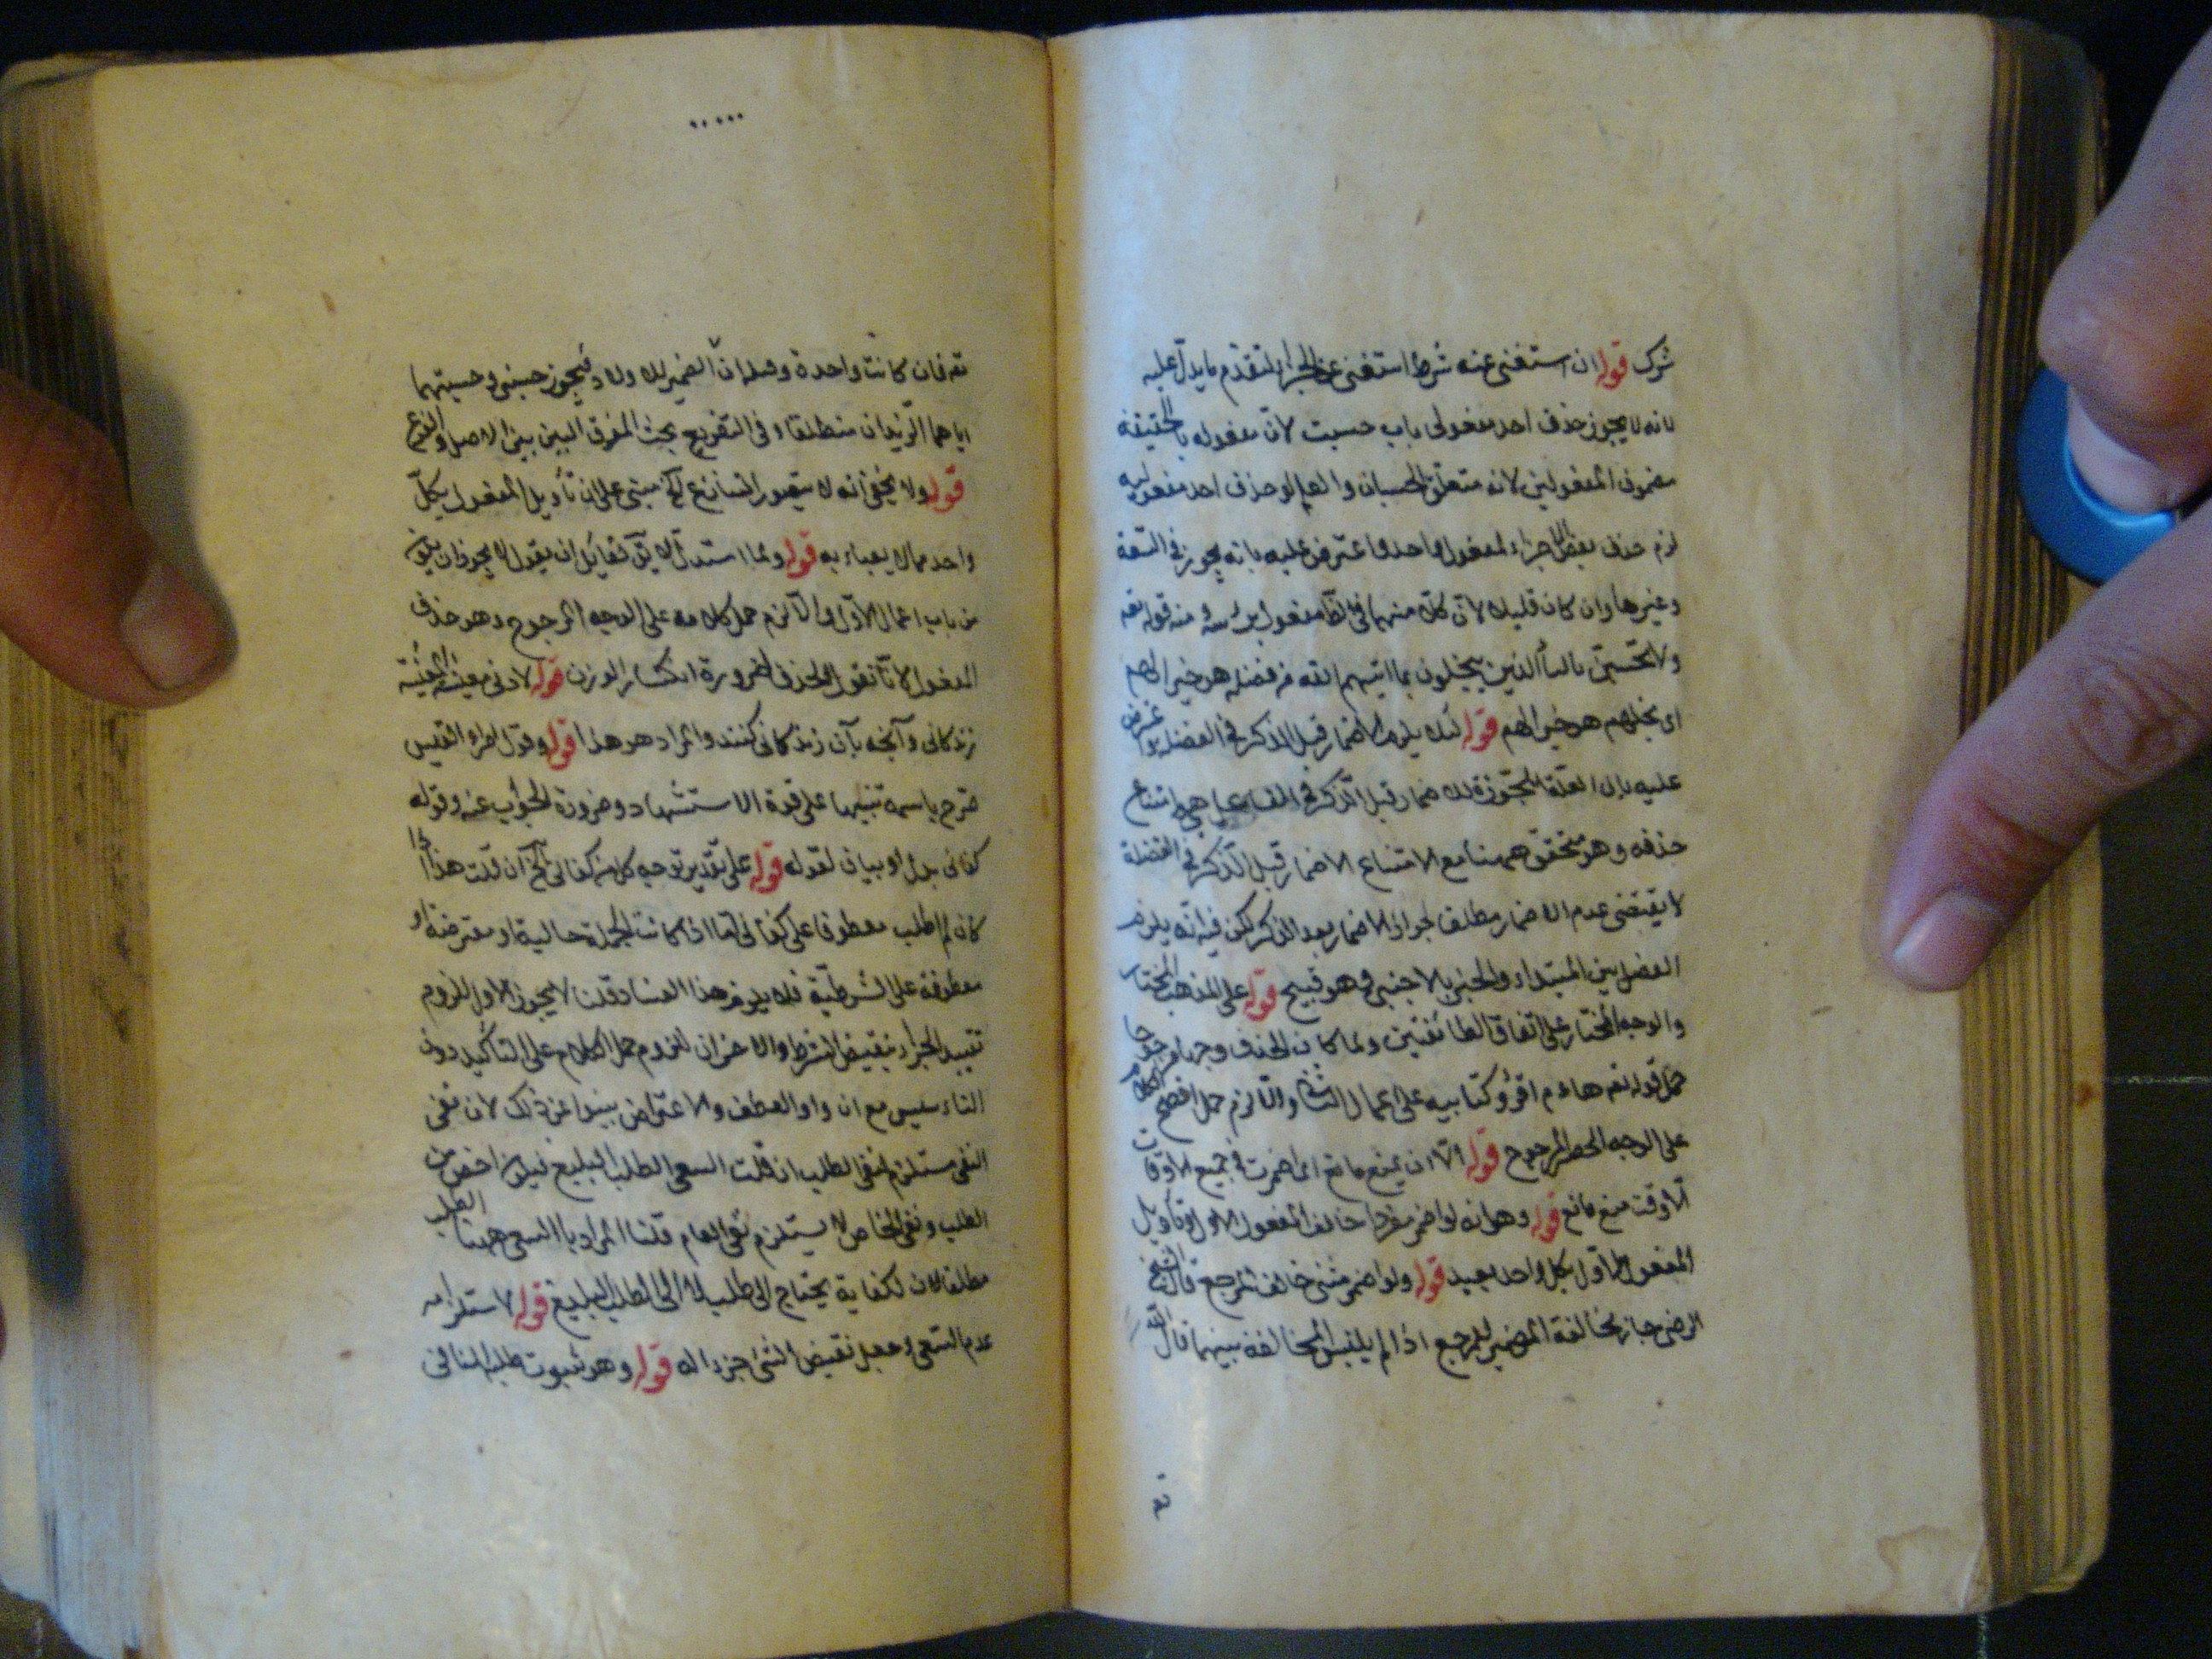 ترك قوله ان استغنى عنه شرط استغنى عن الجزاء لتقدم ما يدل عليه
لانه لا يجوز حذف احد مفعولى باب حسبت لان مفعوله بالحقيقة
مضمون المفعولين لانه متعلق الحسبان والعلم لو حذف احد مفعوليه
لزم حذف بعض اجزاء المفعول الواحد واعترض عليه بانه يجوز فى السعة
وغيرها وان كان قليلا لان كلا منهما فى مفعول برأسه منه قوله تعه
ولا تحسبن بالتاء الذين يبخلون بما اتيهم الله من فضله هو خيرا لهم
اى بخلهم هو خيرا لهم قوله لئلا يلزم الاضمار قبل الذكر فى الفضلة اعترض
عليه بان العلة المجوزة للاضمار قبل الذكر فى الفاعل هى امتناع
حذفه وهو متحقق ههنا مع الامتناع الاضمار قبل الذكر فى الفضلة
لا يقتضى عدم الاضمار مطلقا لجواز الاضمار بعد الذكر لكن فيه انه يلزم
الفصل بين المبتداء والخبر بالاجنبى وهو قبيح قوله على المذهب المختار
والوجه المختار على اتفاق الطائفتين ولما كان الحذف وجها مرجوحا
حمل قوله تعه هاؤم اقرؤ كتابيه على اعمال الثانى والا لزم حمل افصح الكلام
على الوجه المرجوح قوله الا ان يمنع مانع اى اضمرت فى جميع الاوقات
الا وقت منع مانع قوله وهو انه لو اضمر مفردا خالف المفعول الاول وتأويل
المفعول الاول بكل واحد بعيد قوله ولو اضمر مثنى خالف المرجع قال الشيخ
الرضى جاز مخالفة الضمير للمرجع اذا لم يلبس المخالفة بينهما قال الله
تعه
تعه فان كانت واحدة وقبله ان الضمير للاولاد فيجوز حسبنى وحسبتهما
اياهما الزيدان منطلقا وفى التفريع بحث الفرق البين بين الاصل والفرع
قوله ولا يخفى انه لا يتصور التنازع الخ مبنى على ان تأويل المفعول بكل
واحد مما لا يعباء به قوله ولما استدل الخ لقائل ان يقول لا يجوز ان يكون
من باب اعمال الاول والا لزم حمل كلامه على الوجه المرجوح وهو حذف
المفعول لانا نقول الحذف لضرورة انكسار الوزن قوله لادنى معيشة المعيشة
زندكانى وآنجه بآن زندكانى كنند والمراد هو هذا قوله وقول امرء القيس
صرح باسمه تنبيها على قوة الاستشهاد وضرورة الجواب عنه وقوله
كفانى بدل او بيان لقوله قوله على تقدير توجه كل من كفانى الخ ان قلت هذا اذا
كان لم اطلب معطوفا على كفانى اما اذا كانت الجملة حالية او معترضة او
معطوفة على الشرطية فلا يلزم هذا الفساد قلنا لا يجوز الاول للزوم
تقييد الجزاء بنقيض الشرط والاخران للزوم حمل الكلام على التأكيد دون
التاسيس مع ان واو العطف والاعتراض ينبوا عن ذلك لان نفى
النفى مستلزم لنفى الطلب ان قلت السعى الطلب البليغ فيكون اخص من
الطلب ونفى الخاص لا يستلزم نفى العام قلنا المراد بالسعى ههنا الطلب
مطلقا لان الكفاية يحتاج الى طلب لا الى الطلب البليغ قوله لاستلزامه
عدم السعى وجعل نقيض الشئ جزء اله قوله وهو ثبوت طلبه المنافى